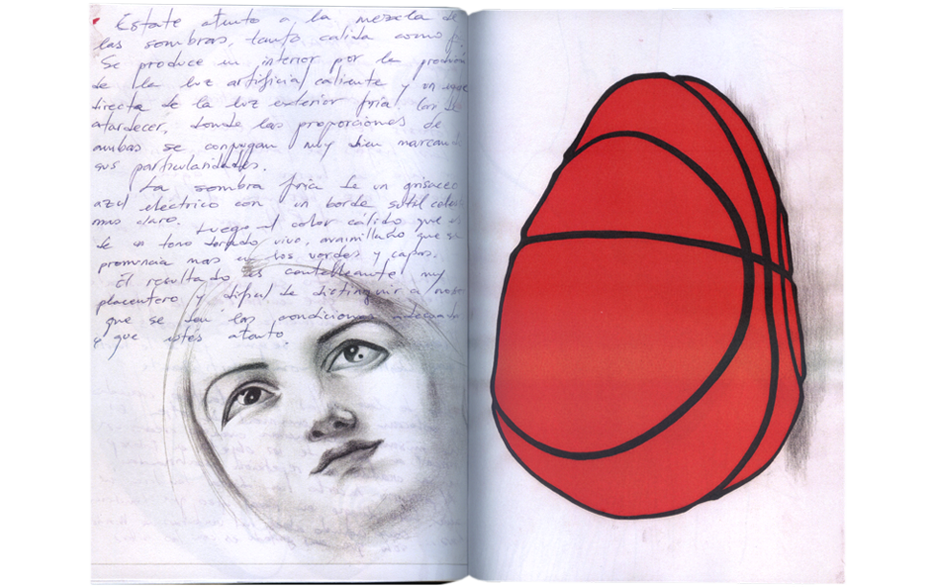 Estate atento a la mezcla de
las sombras, tanto calida como
Se produce un interior por la
de la luz artificial caliente y un
directa de la luz exterior fria. los de
atardecer, donde las proporciones de
ambas se conjugan muy bien
sus particularidades.
La sombra fria de un grisaceo
azul eléctrico con un borde sutil
mas claro. Luego el color cálido que
de un tono dorado vivo, amarillado que se
pronuncia mas en los verdes y
El resultado es muy
placentero y dificil de distinguir a
que se den las condiciones
y que estés atento.